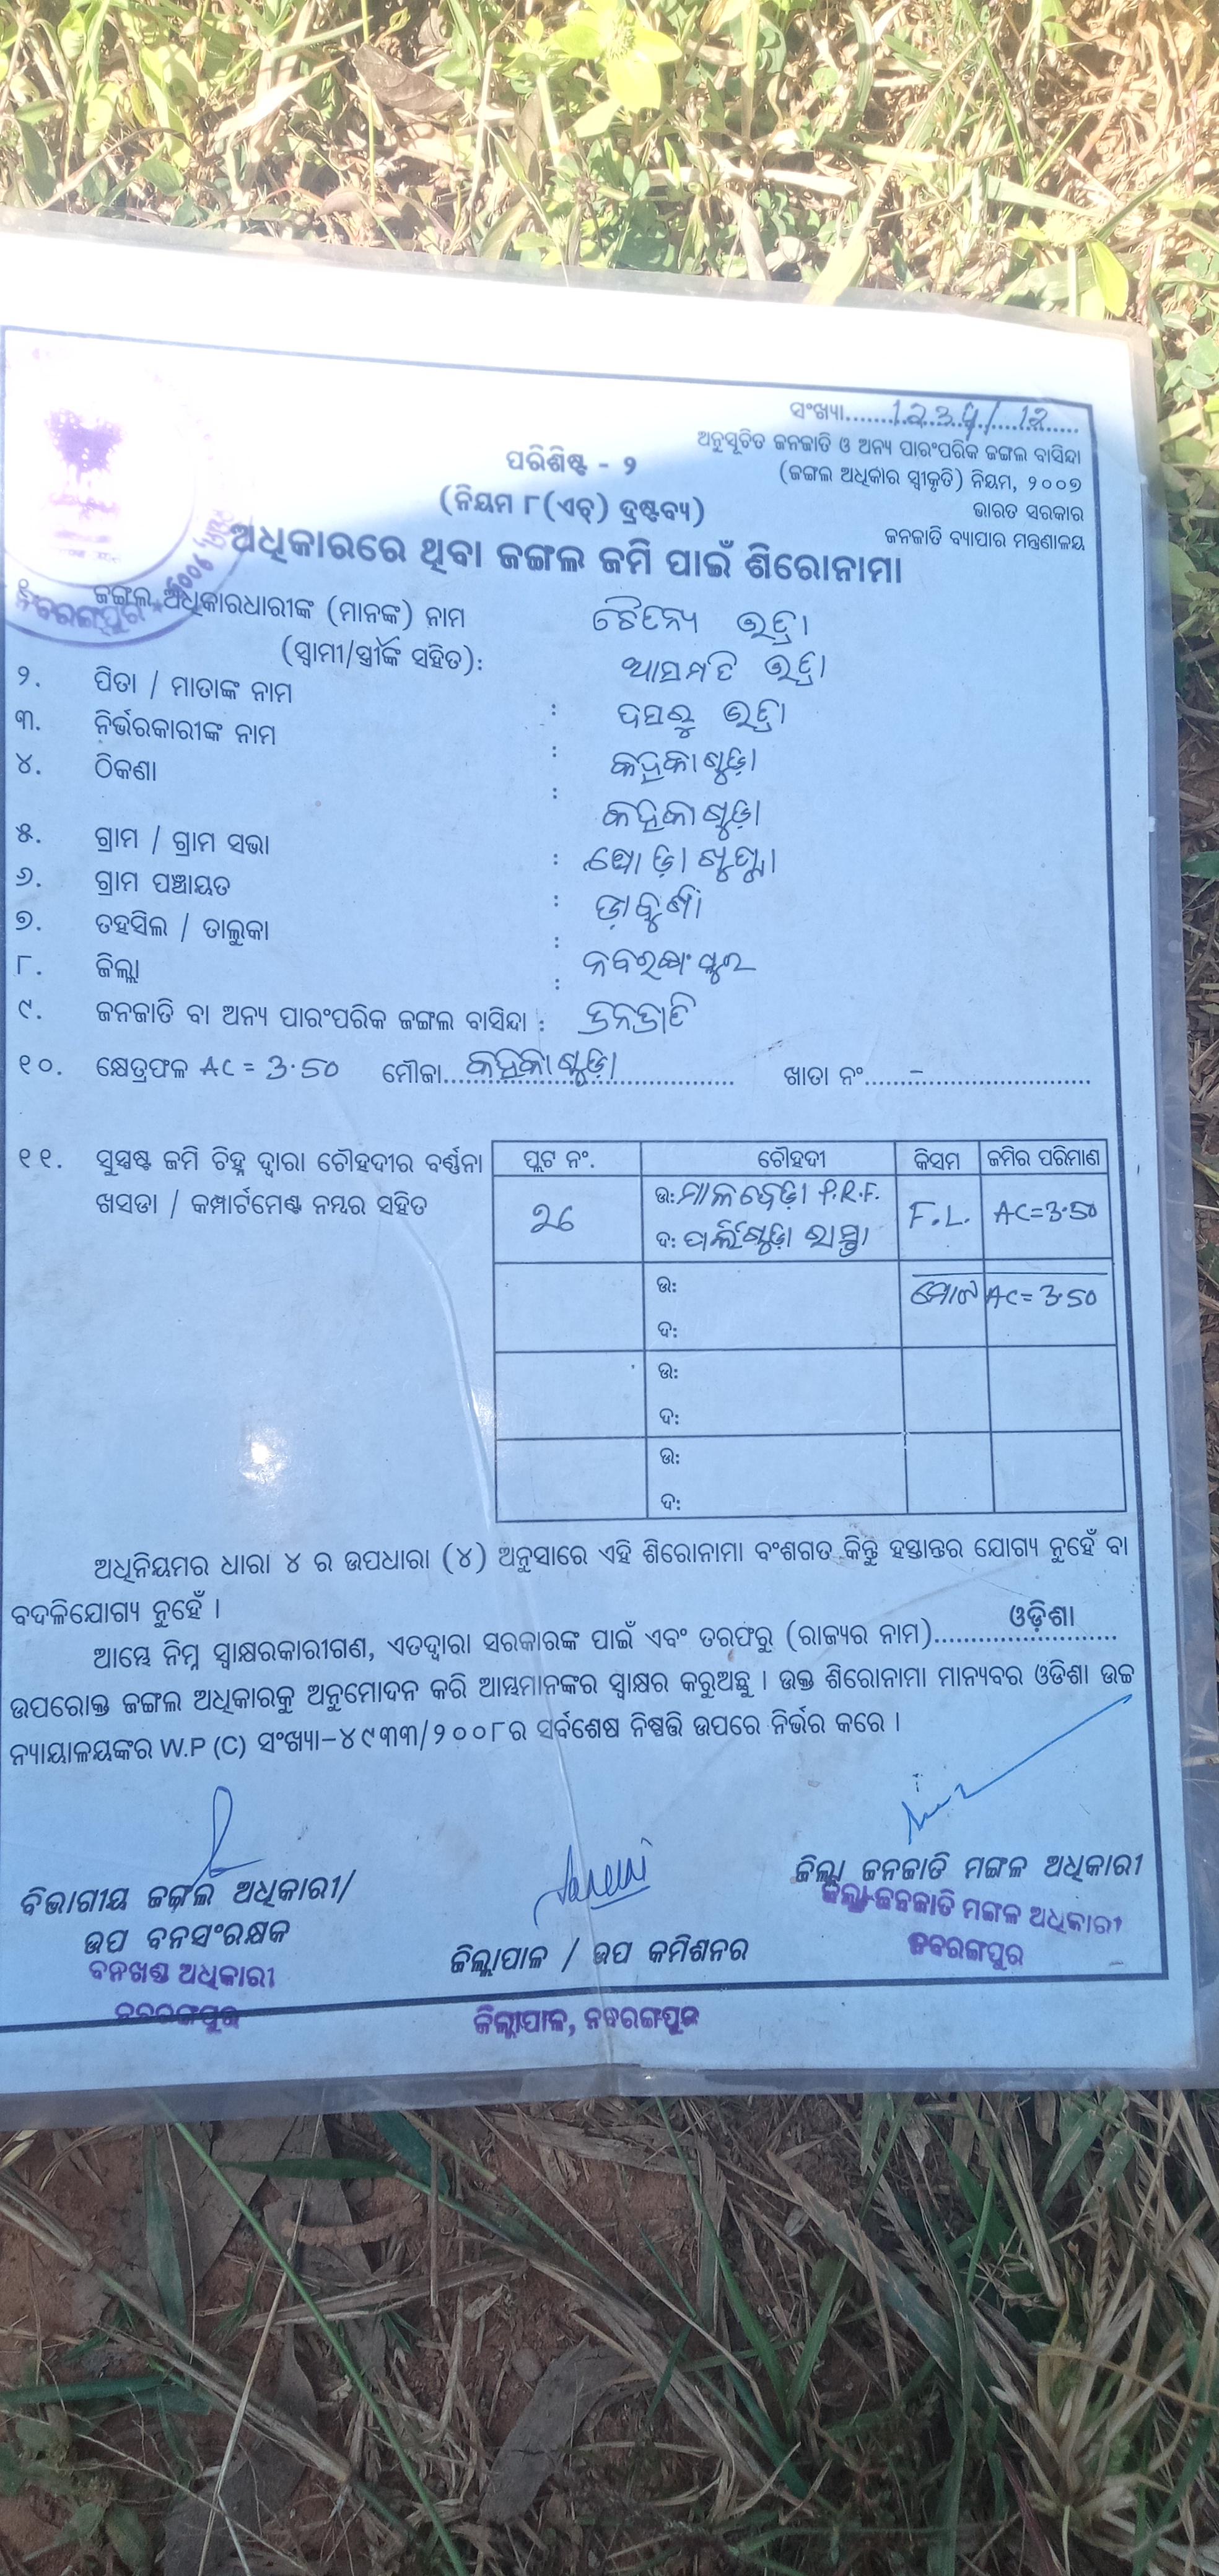 ସଂଖ୍ୟା.......1234/12
ଅନୁସୂଚିତ ଜନଜାତି ଓ ଅନ୍ୟ ପାରଂପରିକ ଜଙ୍ଗଲ ବାସିନ୍ଦା
(ଜଙ୍ଗଲ ଅଧିକାର ସ୍ୱୀକୃତି) ନିୟମ, ୨୦୦୭
ଭାରତ ସରକାର
ଜନଜାତି ବ୍ୟାପାର ମନ୍ତ୍ରଣାଳୟ
ପରିଶିଷ୍ଟ - ୨
(ନିୟମ ୮(ଏଚ୍) ଦ୍ରଷ୍ଟବ୍ୟ)
ଅଧିକାରରେ ଥିବା ଜଙ୍ଗଲ ଜମି ପାଇଁ ଶିରୋନାମା
୧. ଜଙ୍ଗଲ ଅଧିକାରଧାରୀଙ୍କ (ମାନଙ୍କ) ନାମ ଚୈତନ୍ୟ ଭତ୍ରା
(ସ୍ୱାମୀ/ସ୍ତ୍ରୀଙ୍କ ସହିତ): ଆସମତି ଭତ୍ରା
୨. ପିତା / ମାତାଙ୍କ ନାମ : ଦସରୁ ଭତ୍ରା
୩. ନିର୍ଭରକାରୀଙ୍କ ନାମ :
୪. ଠିକଣା :
୫. ଗ୍ରାମ / ଗ୍ରାମ ସଭା :
୬. ଗ୍ରାମ ପଞ୍ଚାୟତ :
୭. ତହସିଲ / ତାଲୁକା : ଡ଼ାବୁଗାଁ
୮. ଜିଲ୍ଲା : ନବରଙ୍ଗପୁର
୯. ଜନଜାତି ବା ଅନ୍ୟ ପାରଂପରିକ ଜଙ୍ଗଲ ବାସିନ୍ଦା : ଜନଜାତି
୧୦. କ୍ଷେତ୍ରଫଳ AC = 3.50 ମୌଜା........ ଖାତା ନଂ.....-.....
୧୧. ସୁସ୍ପଷ୍ଟ ଜମି ଚିହ୍ନ ଦ୍ୱାରା ଚୌହଦୀର ବର୍ଣ୍ଣନା
ଖସଡା / କମ୍ପାର୍ଟମେଣ୍ଟ ନମ୍ବର ସହିତ
ପ୍ଲଟ ନଂ. ଚୌହଦୀ କିସମ ଜମିର ପରିମାଣ
26 ଉ: P.R.F. F.L. AC=3.50
ଦ: ରାସ୍ତା
ଉ: ମୋଟ AC=3.50
ଦ:
ଉ:
ଦ:
ଉ:
ଦ:
ଅଧିନିୟମର ଧାରା ୪ ର ଉପଧାରା (୪) ଅନୁସାରେ ଏହି ଶିରୋନାମା ବଂଶଗତ କିନ୍ତୁ ହସ୍ତାନ୍ତର ଯୋଗ୍ୟ ନୁହେଁ ବା
ବଦଳିଯୋଗ୍ୟ ନୁହେଁ ।
ଆମ୍ଭେ ନିମ୍ନ ସ୍ୱାକ୍ଷରକାରୀଗଣ, ଏତଦ୍ୱାରା ସରକାରଙ୍କ ପାଇଁ ଏବଂ ତରଫରୁ (ରାଜ୍ୟର ନାମ)......ଓଡ଼ିଶା......
ଉପରୋକ୍ତ ଜଙ୍ଗଲ ଅଧିକାରକୁ ଅନୁମୋଦନ କରି ଆମ୍ଭମାନଙ୍କର ସ୍ୱାକ୍ଷର କରୁଅଛୁ । ଉକ୍ତ ଶିରୋନାମା ମାନ୍ୟବର ଓଡିଶା ଉଚ୍ଚ
ନ୍ୟାୟାଳୟଙ୍କର W.P (C) ସଂଖ୍ୟା-୪୯୩୩/୨୦୦୮ର ସର୍ବଶେଷ ନିଷ୍ପତ୍ତି ଉପରେ ନିର୍ଭର କରେ ।
ବିଭାଗୀୟ ଜଙ୍ଗଲ ଅଧିକାରୀ/
ଉପ ବନସଂରକ୍ଷକ
ବନଖଣ୍ଡ ଅଧିକାରୀ
ନବରଙ୍ଗପୁର
ଜିଲ୍ଲାପାଳ / ଉପ କମିଶନର
ଜିଲ୍ଲାପାଳ, ନବରଙ୍ଗପୁର
ଜିଲ୍ଲା ଜନଜାତି ମଙ୍ଗଳ ଅଧିକାରୀ
ଜିଲ୍ଲା ଜନଜାତି ମଙ୍ଗଳ ଅଧିକାରୀ
ନବରଙ୍ଗପୁର